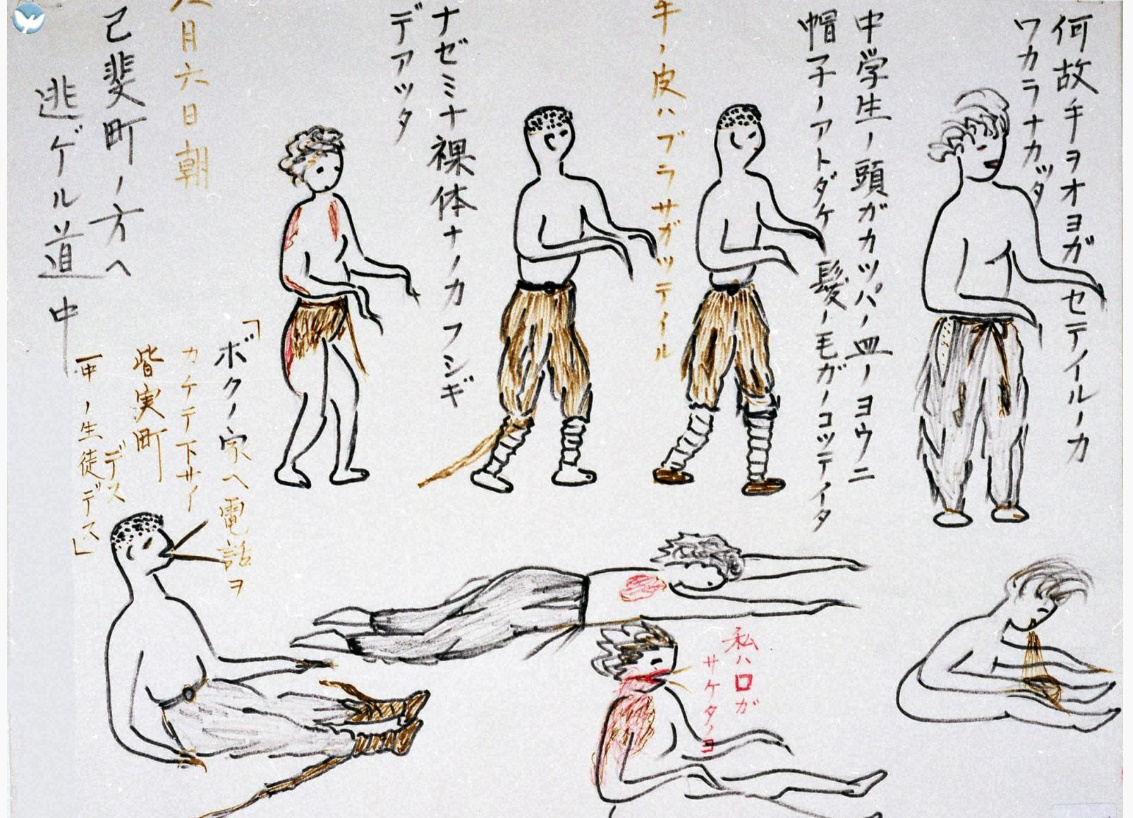 何故手ヲオヨガセテイルノカ
ワカラナカッタ
中学生ノ頭ガカッパノ皿ノヨウニ
帽子ノアトダケ髪ノ毛ガノコッテイタ
手ノ皮ハブラサガッテイル
ナゼミナ裸体ナノカフシギ
デアッタ
八月六日朝
己斐町ノ方ヘ
逃ゲル道中
「ボクノ家ヘ電話ヲ
カケテ下サイ
皆実町
デス
一中ノ生徒デス」
私ハ口ガ
サケタノヨ